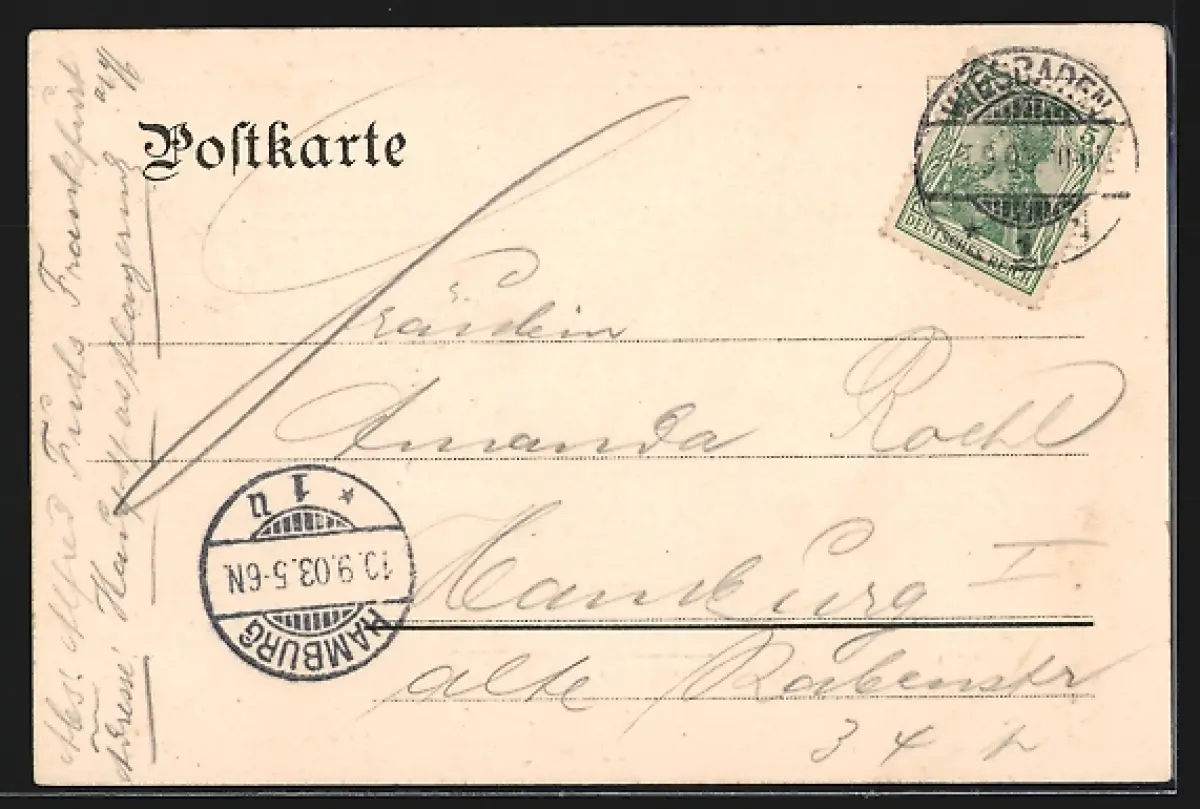 Postkarte
WIESBADEN
5
DEUTSCHES REICH
1
Fräulein
Amanda Roehl
Hamburg I.
alte Rabenstr
34
HAMBURG
10.9.03.5-6N.
* 1 u
Abs. Alfred Fuchs Frankfurt a/M
Adresse: Hauptpostlagernd